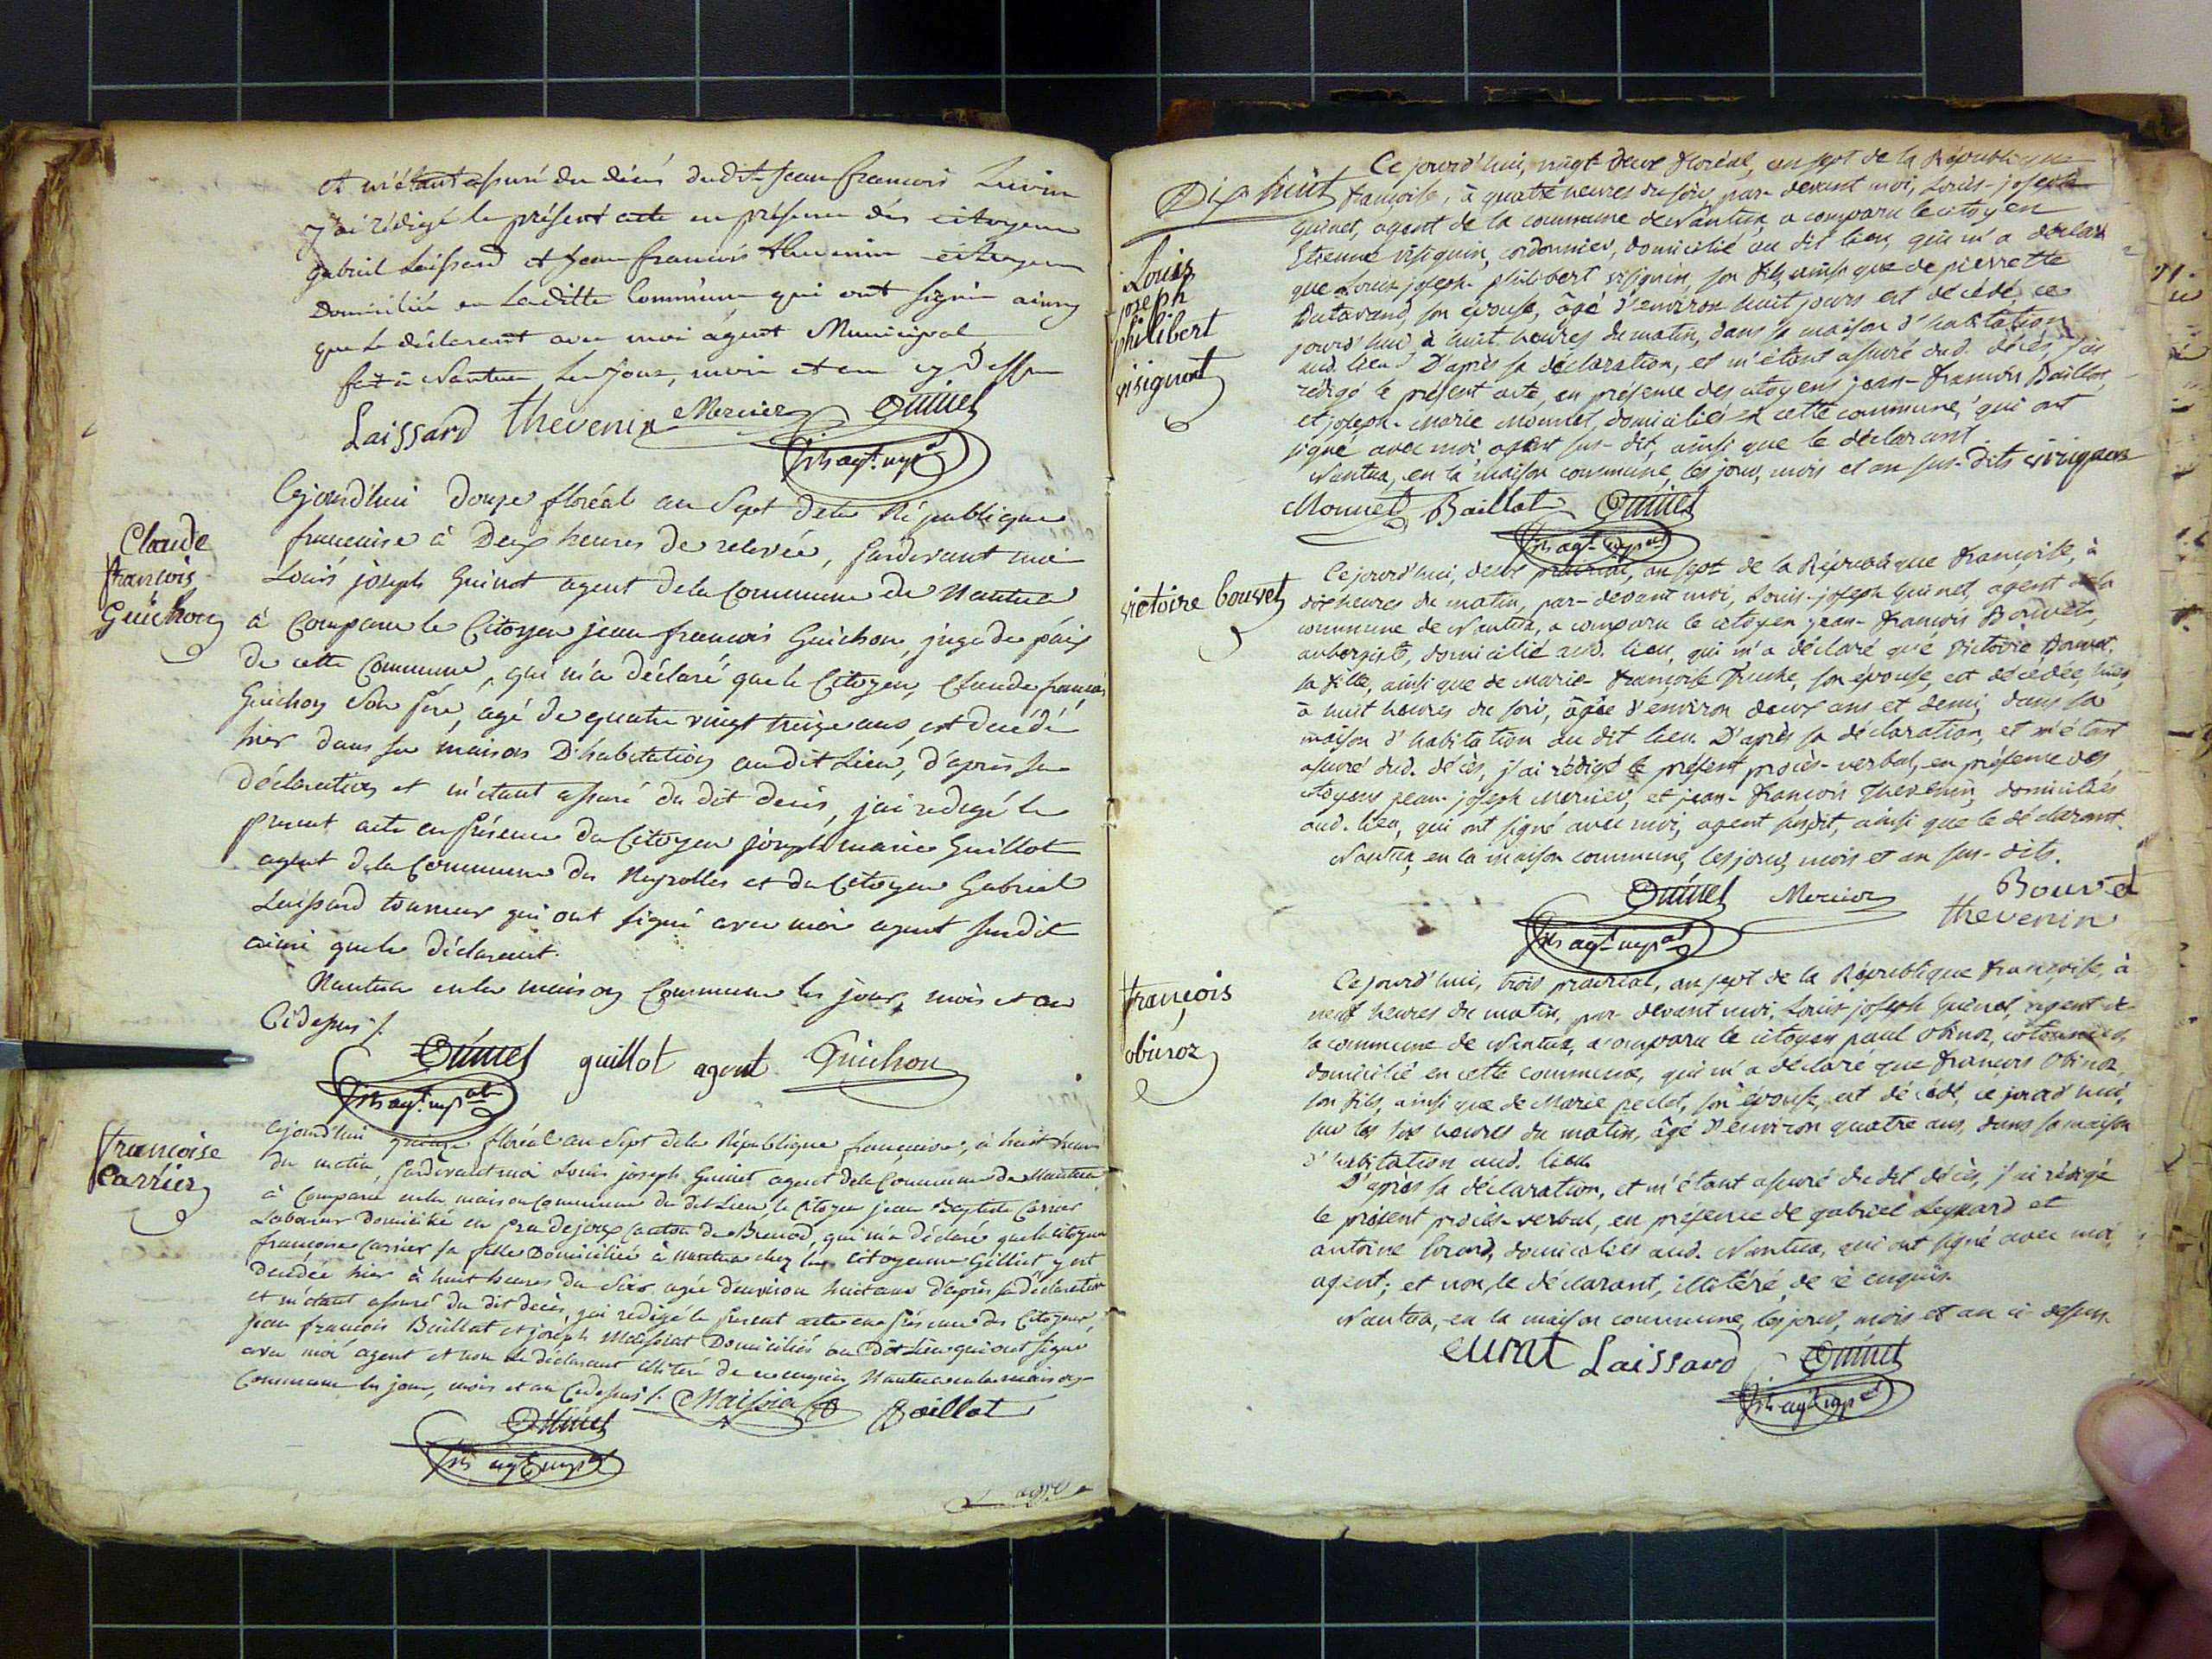 et m'étant assuré du décés dudit Jean francois
J'ai rédigé le présent acte en présence des citoyens
gabriel Laissard et Jean francois thevenin citoyens
Domiciliés en Laditte Commune qui ont signés ainsy
que le déclarent avec moi agent Municipal
fait à Nantua, Les Jour, mois et an cy Dessus
Laissard thevenin Mercier Guinet
agt. mpal
Claude
françois
Guichon
Cejourd'hui Douze floréal an Sept dela République
francaise à Deux heures de relevée, pardevant moi
Louis joseph Guinet agent dela Commune de Nantua
à Comparu le Citoyen jean francois Guichon, juge de paix
de cette Commune, qui m'a déclaré que le Citoyen Claude françois
Guichon son père, agé de quatre vingt treize ans, est décédé
hier dans sa maison D'habitation audit Lieu, d'après sa
déclaration et m'étant assuré du dit decés, j'ai redigé le
present acte en présence du Citoyen joseph marie Guillot
agent dela Commune des Neyrolles et du Citoyen Gabriel
Laissard tourneur qui ont signé avec moi agent susdit
ainsi que le déclarant.
Nantua en la maison Commune les jour, mois et an
Cidessus /.
Guinet guillot agent Guichon
agt. mpal
françoise
Carrier
Cejourd'hui quinze floréal an Sept dela République francaise, à huit heures
du matin, pardevant moi Louis joseph Guinet agent dela Commune de Nantua
à Comparu en la maison Commune du dit Lieu, le Citoyen jean Baptiste Carrier
Laboureur Domicilié en Canton de Brenod, qui m'a déclaré que la Citoyenne
francoise Carrier sa fille Domiciliée à Nantua chez la Citoyenne y est
decédée hier à huit heures du Soir agée d'environ huit ans d'après sa déclaration
et m'étant assuré du dit decès, j'ai redigé le present acte en présence des Citoyens,
jean francois Baillat et joseph Maissiat Domiciliés au dit Lieu qui ont signé
avec moi agent et non le déclarant illitéré de ce enquis, Nantua en la maison
Commune les jour, mois et an Cidessus /. Maissiat Baillat
Guinet
agt mpal
Dix huit
Louis
joseph
philibert
visignat
Ce jourd'hui, vingt-deux floréal, an sept de la République
françoise, à quatre heures du soir, par-devant moi, Louis-joseph
Guinet, agent de la commune de Nantua, a comparu le citoyen
Etienne visiquin, cordonnier, domicilié au dit lieu, qui m'a déclaré
que Louis joseph philibert visiquin, son fils, ainsi que de pierrette
Butavand, son épouse, âgé d'environ huit jours est décédé, ce
jourd'hui à huit heures du matin, dans sa maison d'habitation
aud. lieu D'après sa déclaration, et m'étant assuré dud. décès, j'ai
rédigé le présent acte, en présence des citoyens jean-francois Baillat,
et joseph-marie monnet, domiciliés en cette commune, qui ont
signé avec moi agent sus-dit, ainsi que le déclarant.
Nantua, en la maison commune, les jour, mois et an sus-dits
Monnet Baillat Guinet
agt. mpal
victoire bouvet
Ce jourd'hui, deux prairial, an sept de la République françoise, à
dix heures du matin, par-devant moi, Louis-joseph Guinet, agent de la
commune de Nantua, a comparu le citoyen jean-françois Bouvet,
aubergiste, domicilié aud. lieu, qui m'a déclaré que victoire Bouvet,
sa fille, ainsi que de marie-françoise son épouse, est décédée, hier,
à huit heures du soir, âgée d'environ deux ans et demi, dans sa
maison d'habitation au dit lieu. D'après sa déclaration, et m'étant
assuré dud. décès, j'ai rédigé le présent procès-verbal, en présence des
citoyens jean-joseph Mercier, et jean-françois Thevenin, domiciliés
aud. lieu, qui ont signé avec moi, agent susdit, ainsi que le déclarant.
Nantua, en la maison commune, les jour, mois et an sus-dits.
Guinet Mercier Bouvet
thevenin
agt. mpal
françois
obinoz
Ce jourd'hui, trois prairial, an sept de la République françoise, à
neuf heures du matin, par-devant moi, Louis joseph Guinet, agent de
la commune de Nantua, a comparu le citoyen paul obinoz,
domicilié en cette commune, qui m'a déclaré que françois Obinoz,
son fils, ainsi que de Marie peclet, son épouse, est décédé, ce jourd'hui,
sur les six heures du matin, âgé d'environ quatre ans, dans sa maison
d'habitation aud. lieu.
D'après sa déclaration, et m'étant assuré du dit décès, j'ai rédigé
le présent procès-verbal, en présence de gabriel Leyssard et
antoine domiciliés aud. Nantua, qui ont signé avec moi
agent; et non, le déclarant, illitéré, de ce enquis.
Nantua, en la maison commune, les jour, mois et an ci-dessus.
Laissard Guinet
agt. mpal